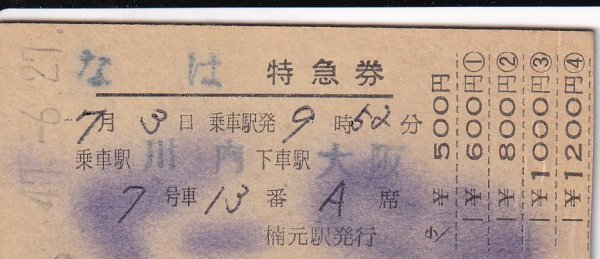 なは 特急券
7月3日 乗車駅発 9時52分
乗車駅 川内 下車駅 大阪
7号車 13番 A席
楠元駅発行
小 ¥500円
¥600円①
¥800円②
¥1000円③
¥1200円④
-6.27.